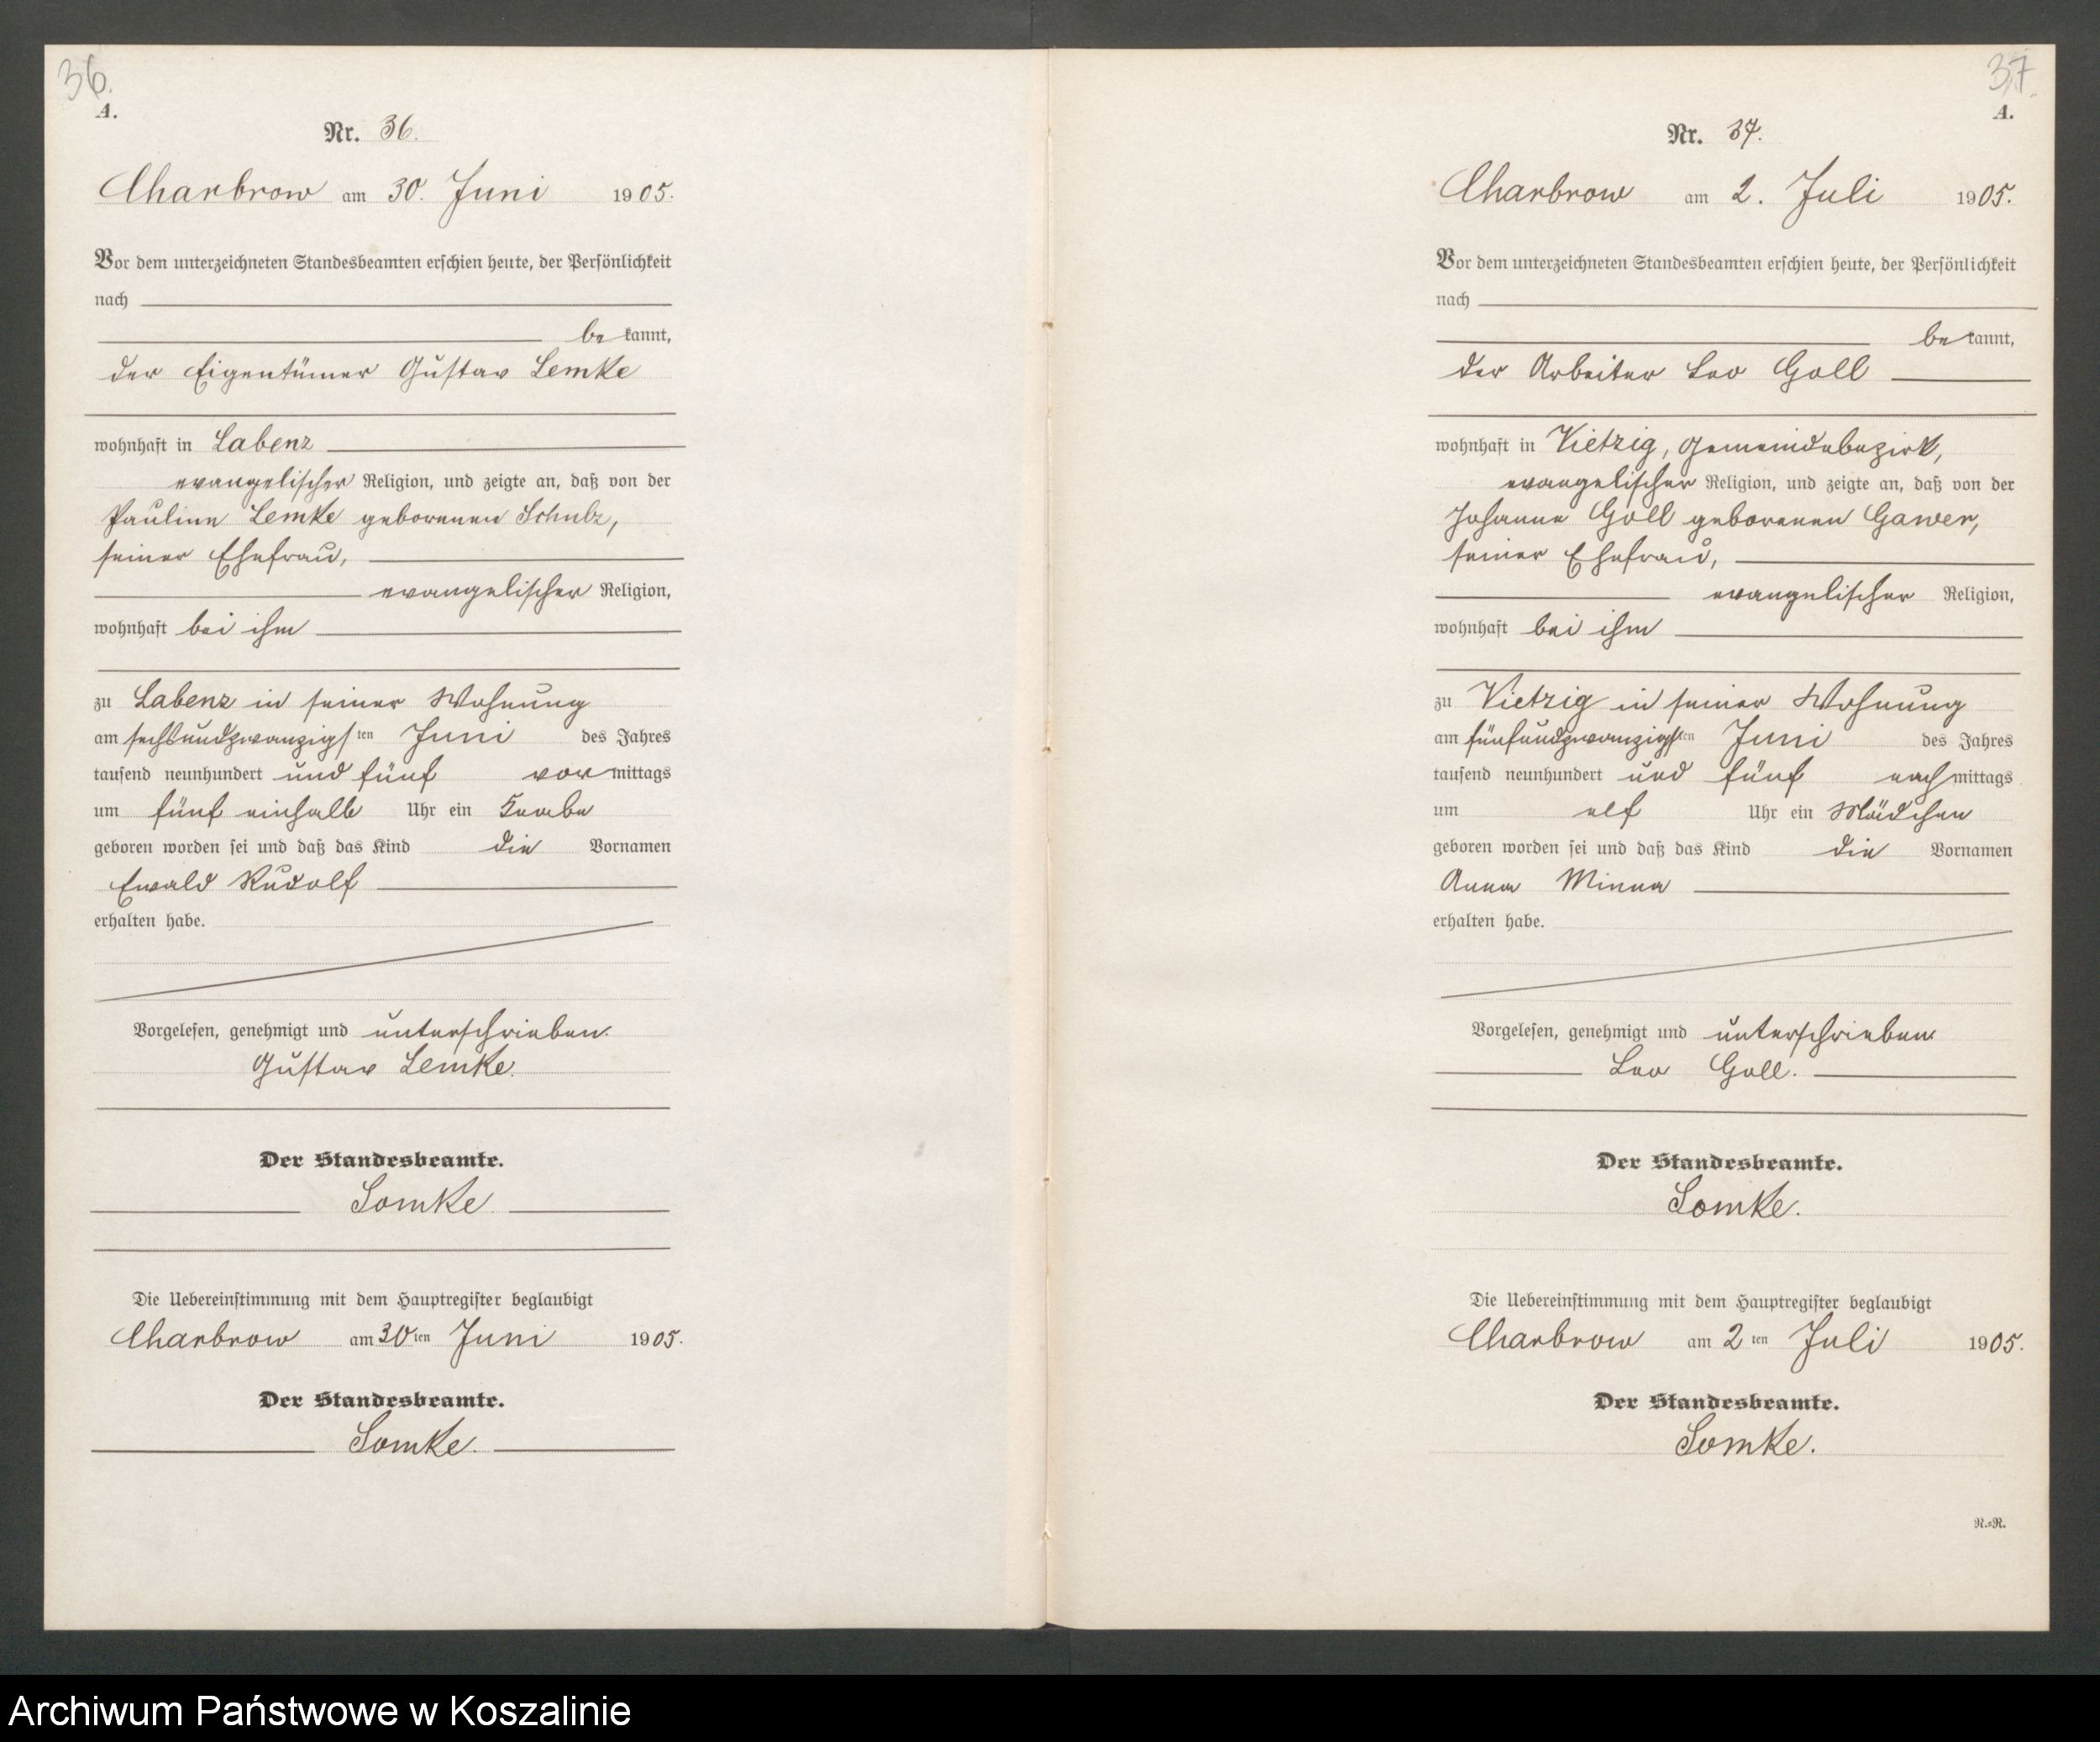 36.
A.
Nr. 36.
Charbrow am 30. Juni 1905.
Vor dem unterzeichneten Standesbeamten erschien heute, der Persönlichkeit
nach
be kannt,
der Eigentümer Gustav Lemke
wohnhaft in Labenz
evangelischer Religion, und zeigte an, daß von der
Pauline Lemke geborenen Schulz,
seiner Ehefrau,
evangelischer Religion,
wohnhaft bei ihm
zu Labenz in seiner Wohnung
am sechsundzwanzigsten Juni des Jahres
tausend neunhundert und fünf vormittags
um fünf einhalb Uhr ein Knabe
geboren worden sei und daß das Kind die Vornamen
Ewald Rudolf
erhalten habe.
Vorgelesen, genehmigt und unterschrieben.
Gustav Lemke.
Der Standesbeamte.
Somke.
Die Uebereinstimmung mit dem Hauptregister beglaubigt
Charbrow am 30ten Juni 1905.
Der Standesbeamte.
Somke.
37.
A.
Nr. 37.
Charbrow am 2. Juli 1905.
Vor dem unterzeichneten Standesbeamten erschien heute, der Persönlichkeit
nach
be kannt,
der Arbeiter Leo Goll
wohnhaft in Vietzig, Gemeindebezirk,
evangelischer Religion, und zeigte an, daß von der
Johanne Goll geborenen Gawer,
seiner Ehefrau,
evangelischer Religion,
wohnhaft bei ihm
zu Vietzig in seiner Wohnung
am fünfundzwanzigsten Juni des Jahres
tausend neunhundert und fünf nachmittags
um elf Uhr ein Mädchen
geboren worden sei und daß das Kind die Vornamen
Anna Minna
erhalten habe.
Vorgelesen, genehmigt und unterschrieben
Leo Goll.
Der Standesbeamte.
Somke.
Die Uebereinstimmung mit dem Hauptregister beglaubigt
Charbrow am 2ten Juli 1905.
Der Standesbeamte.
Somke.
R.=R.
Archiwum Państwowe w Koszalinie